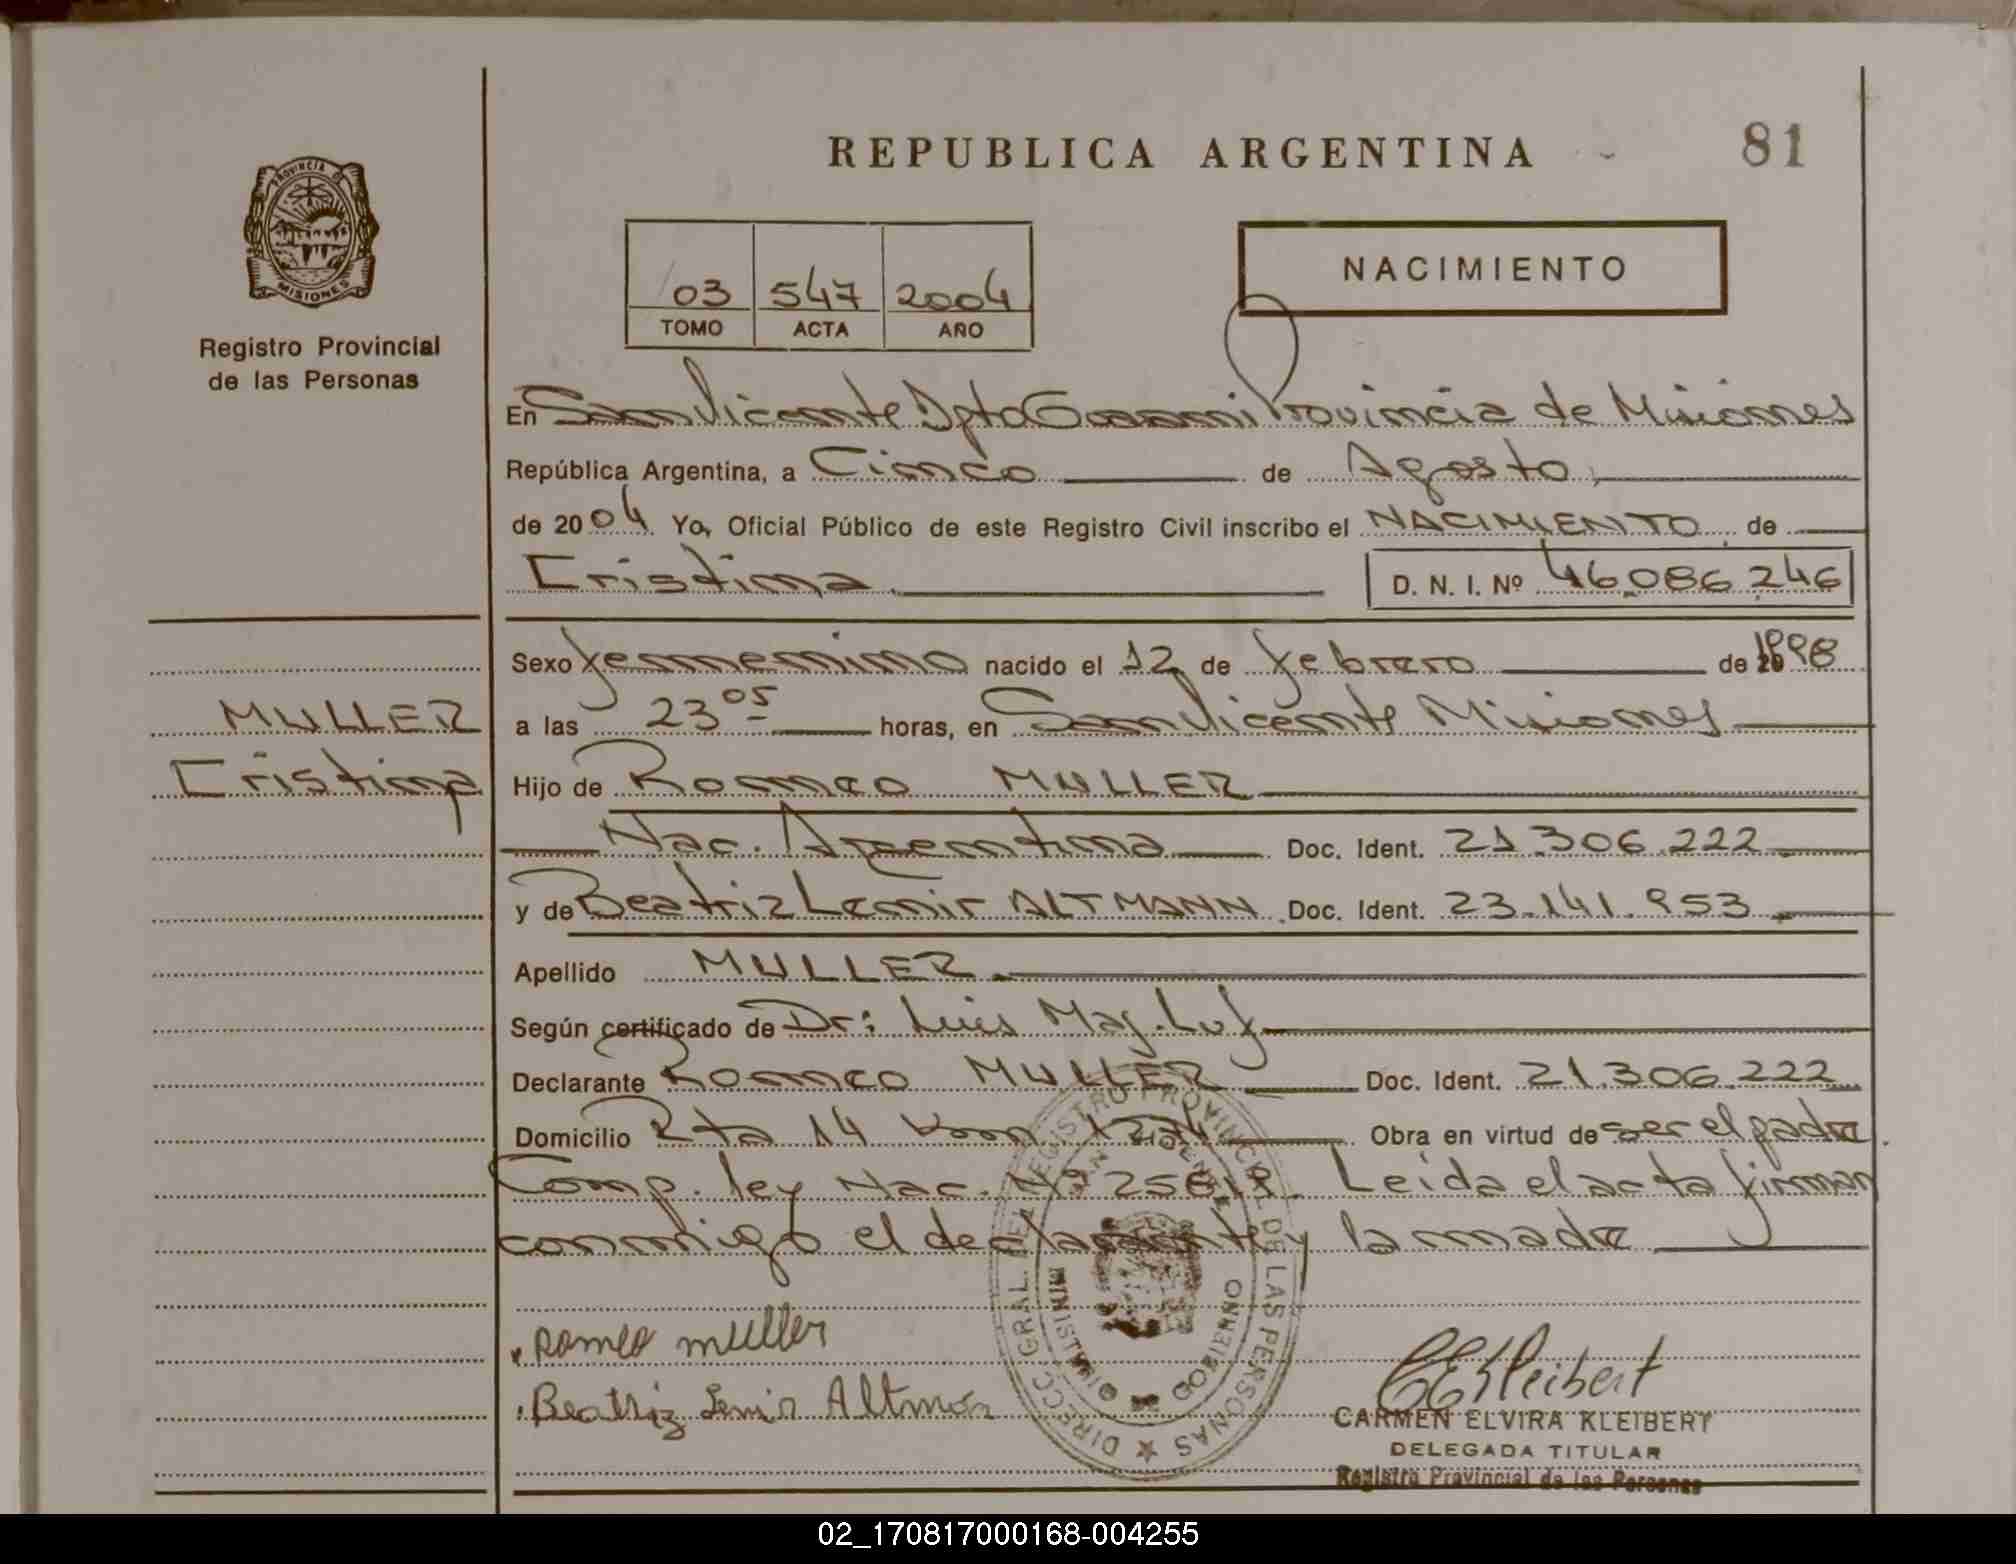 REPUBLICA ARGENTINA
81
PROVINCIA DE
MISIONES
Registro Provincial
de las Personas
03 547 2004
TOMO ACTA AÑO
NACIMIENTO
En San Vicente Dpto Guaraní Provincia de Misiones
República Argentina, a Cinco de Agosto
de 2004 Yo, Oficial Público de este Registro Civil inscribo el NACIMIENTO de
Cristina D. N. I. Nº 46.086.246
Sexo femenino nacido el 12 de febrero de 1998
MULLER
Cristina
a las 23 05 horas, en San Vicente Misiones
Hijo de Romeo MULLER
Nac. Argentina Doc. Ident. 21.306.222
y de Beatriz Lenir ALTMANN Doc. Ident. 23.141.953
Apellido MULLER
Según certificado de Dr: Luis Maj. Luf
Declarante Romeo MULLER Doc. Ident. 21.306.222
Domicilio Rta 14 km Obra en virtud de ser el padre
Comp. ley Nac. Nº Leida el acta firman
conmigo el declarante y la madre
Romeo muller
Beatriz Lenir Altman
DIRECC. GRAL. DEL REGISTRO PROVINCIAL DE LAS PERSONAS
MINISTERIO GOBIERNO
CEKleibert
CARMEN ELVIRA KLEIBERT
DELEGADA TITULAR
Registro Provincial de las Personas
02_170817000168-004255